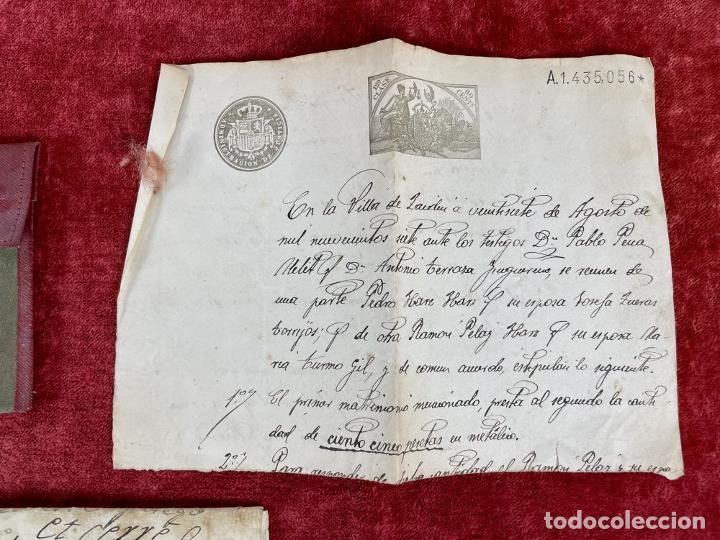 A.1.435,056*
ADMINISTRACION DE
CLASE
En la Villa de Zaidin á veintisiete de Agosto de
mil nuevecientos siete ante los testigos Dn Pablo Pena
y Dn Antonio Terraza se reunen de
una parte Pedro Ibarz Ibarz y su esposa Josefa Zueras
Torrijos; y de otra Ramón Pelay Ibarz y su esposa Ma-
ria Turmo Gil, y de comun acuerdo, estipulan lo siguiente.
1.º El primer matrimonio mencionado, presta al segundo la canti-
dad de ciento cinco pesetas en metálico.
2.º Para responder de esta cantidad el Ramón Pelay y su espo
et
todocoleccion.net